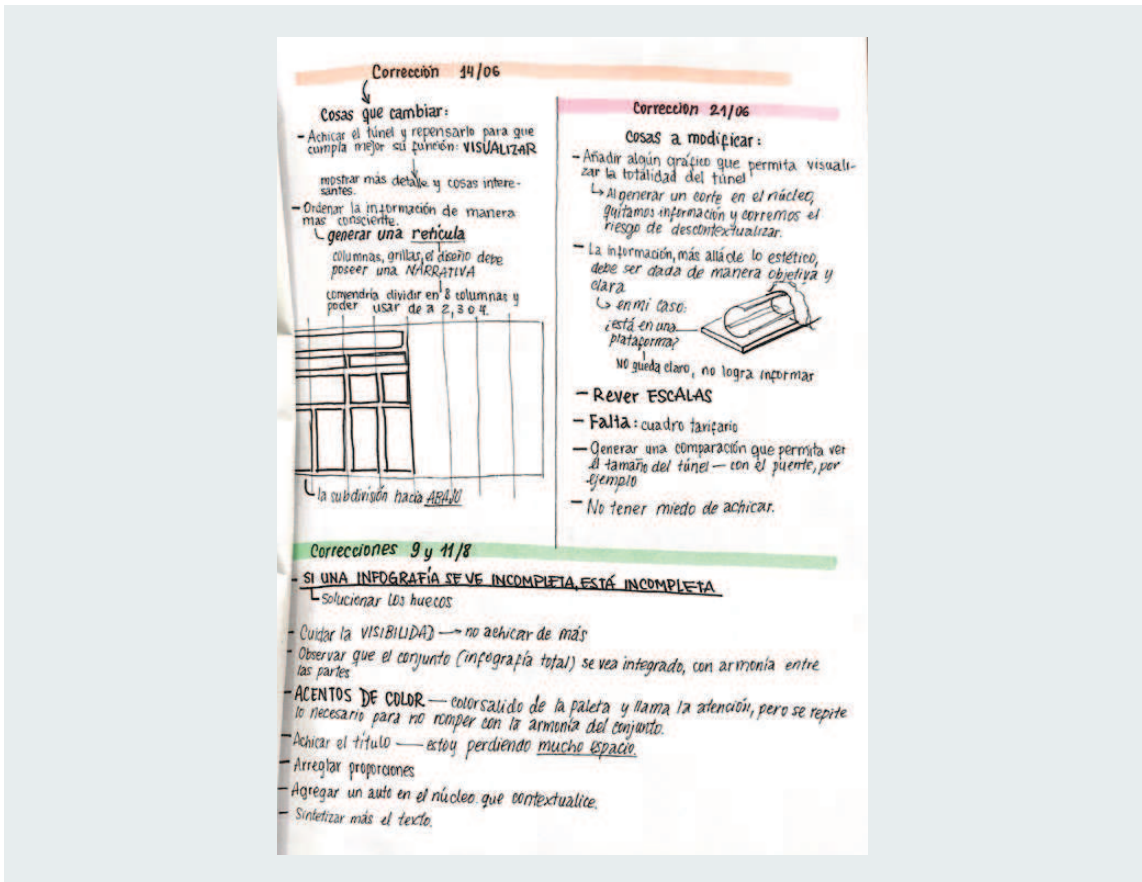 Corrección 14/06
Cosas que cambiar:
- Achicar el túnel y repensarlo para que
cumpla mejor su función: VISUALIZAR
mostrar más detalle y cosas intere-
santes.
- Ordenar la información de manera
mas consciente.
generar una retícula
columnas, grillas, el diseño debe
poseer una NARRATIVA
convendría dividir en 8 columnas y
poder usar de a 2, 3 o 4.
la subdivisión hacia ABAJO
Corrección 21/06
Cosas a modificar:
- Añadir algún gráfico que permita visuali-
zar la totalidad del túnel
Al generar un corte en el núcleo,
quitamos información y corremos el
riesgo de descontextualizar.
- La información, más allá de lo estético,
debe ser dada de manera objetiva y
clara
en mi caso:
¿está en una
plataforma?
NO queda claro, no logra informar
- Rever ESCALAS
- Falta: cuadro tarifario
- Generar una comparación que permita ver
el tamaño del túnel — con el puente, por
ejemplo
- No tener miedo de achicar.
Correcciones 9 y 11/8
- SI UNA INFOGRAFÍA SE VE INCOMPLETA, ESTÁ INCOMPLETA
Solucionar los huecos
- Cuidar la VISIBILIDAD → no achicar de más
- Observar que el conjunto (infografía total) se vea integrado, con armonía entre
las partes
- ACENTOS DE COLOR — color salido de la paleta y llama la atención, pero se repite
lo necesario para no romper con la armonía del conjunto.
- Achicar el título — estoy perdiendo mucho espacio.
- Arreglar proporciones
- Agregar un auto en el núcleo que contextualice.
- Sintetizar más el texto.